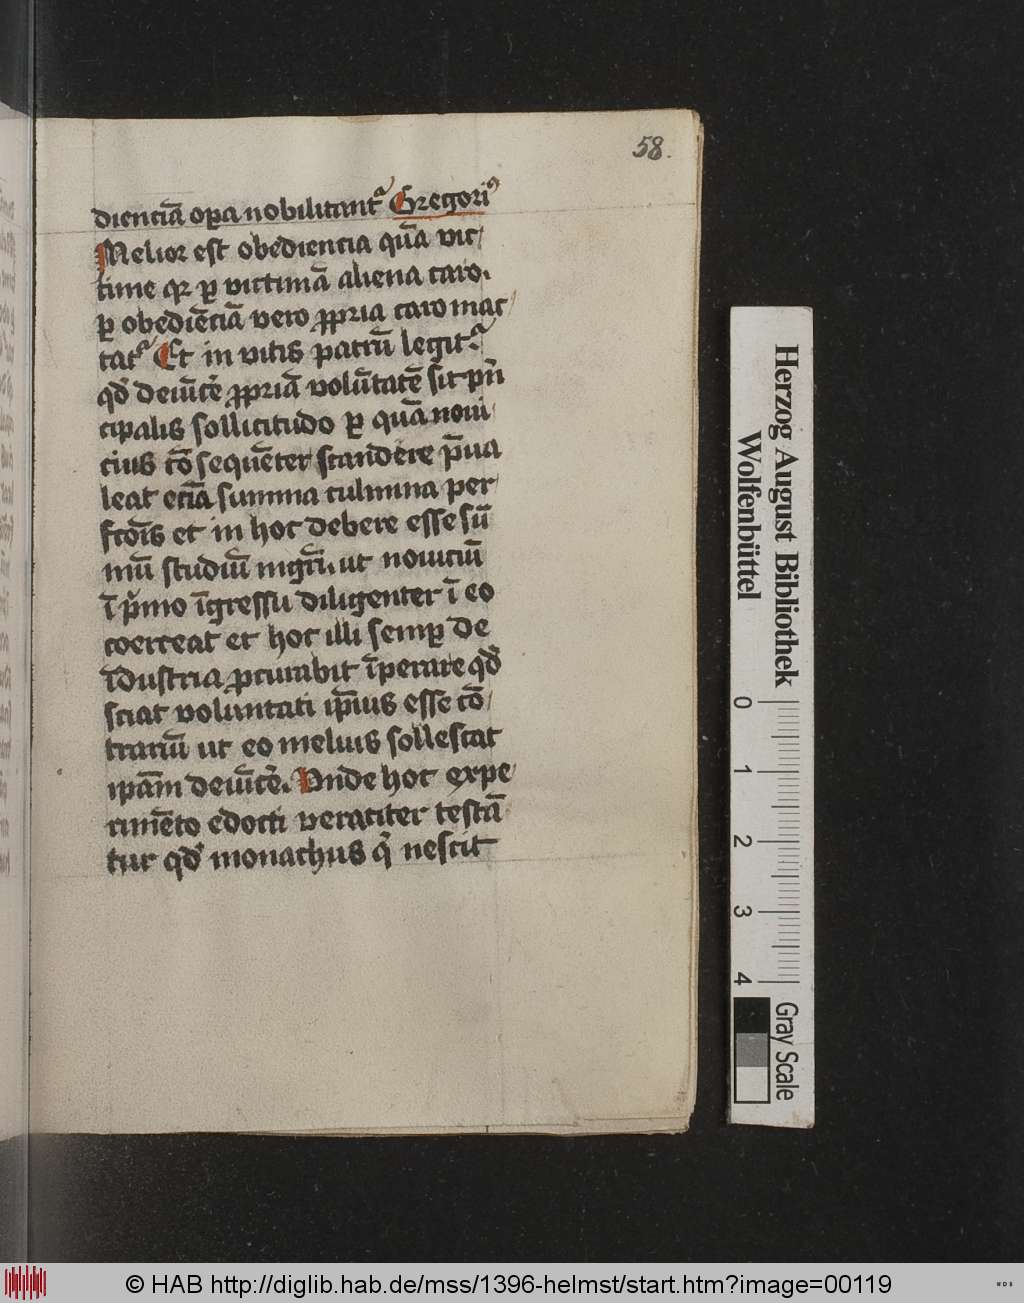 58.
dienciā oꝑa nobilitantʳ Gregoriꝰ
Melior est obediencia quā vic/
time qꝛ ꝑ victimā aliena caro.
ꝑ obediēciā vero ꝓpria caro mac/
tatʳ Et in vitis patrū legitʳ.
qd' deuīcē ꝓpriā volūtatē sit pn̄
cipalis sollicitudo ꝑ quā noui/
cius cō sequēter scandere p̄ua
leat eciā summa culmina per/
fcōīs et in hoc debere esse sū
mū studiū mgrī. ut nouiciū
ī pͥmo īgressu diligenter ī eo
coerceat et hoc illi semꝑ de
īdustria ꝓcurabit īperare qd'
sciat voluntati ip̄ius esse cō/
trariū ut eo melius sollescat
ipām deuīcē. Vnde hoc expe/
rimēto edocti veraciter testā
tur qd' monachus qͥ nescit
Herzog August Bibliothek
Wolfenbüttel
0 1 2 3 4
Gray Scale
© HAB http://diglib.hab.de/mss/1396-helmst/start.htm?image=00119